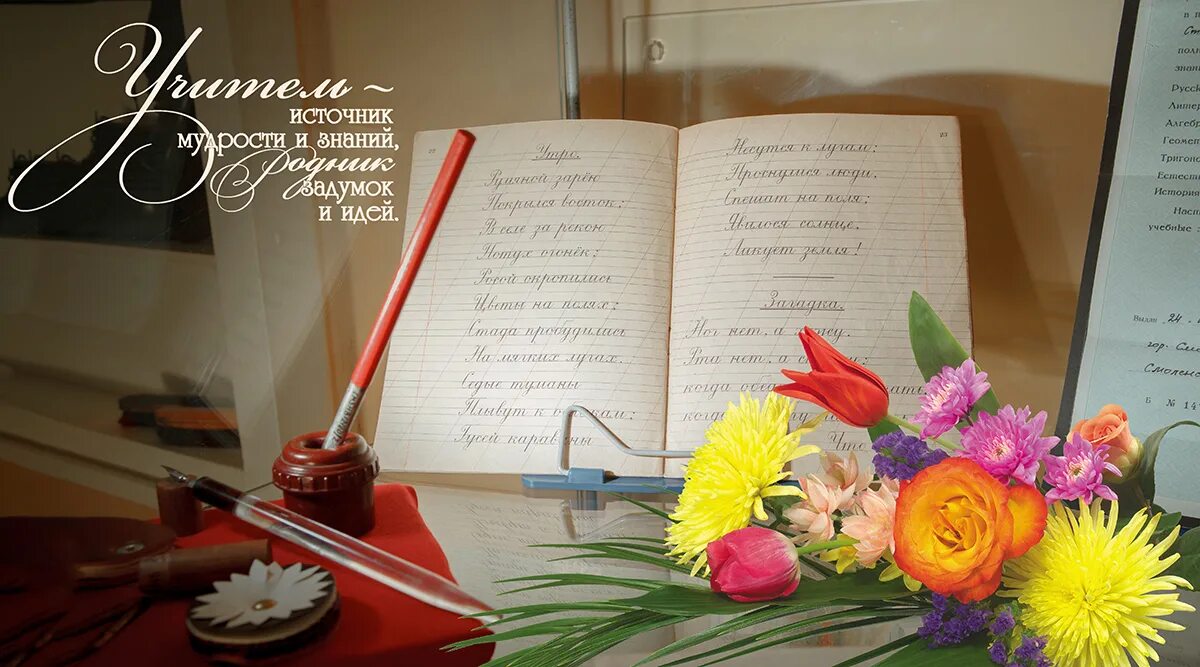 Учитель ~
источник
мудрости и знаний,
Родник
задумок
и идей.
22
Утро.
Румяной зарёю
Покрылся восток;
В селе за рекою
Потух огонёк;
Росой окропились
Цветы на полях;
Стада пробудились
На мягких лугах.
Седые туманы
Плывут к облакам;
Гусей караваны
23
Несутся к лугам;
Проснулися люди.
Спешат на поля;
Явилося солнце.
Ликует земля!
Загадка.
Ног нет, а
Рта нет, а
когда
когда
Что
полн
знани
Русск
Литер
Алгебр
Геомет
Тригон
Естест
История
Наст
учебные
Выдан 24
гор. Смо
Смоленск
Б № 14